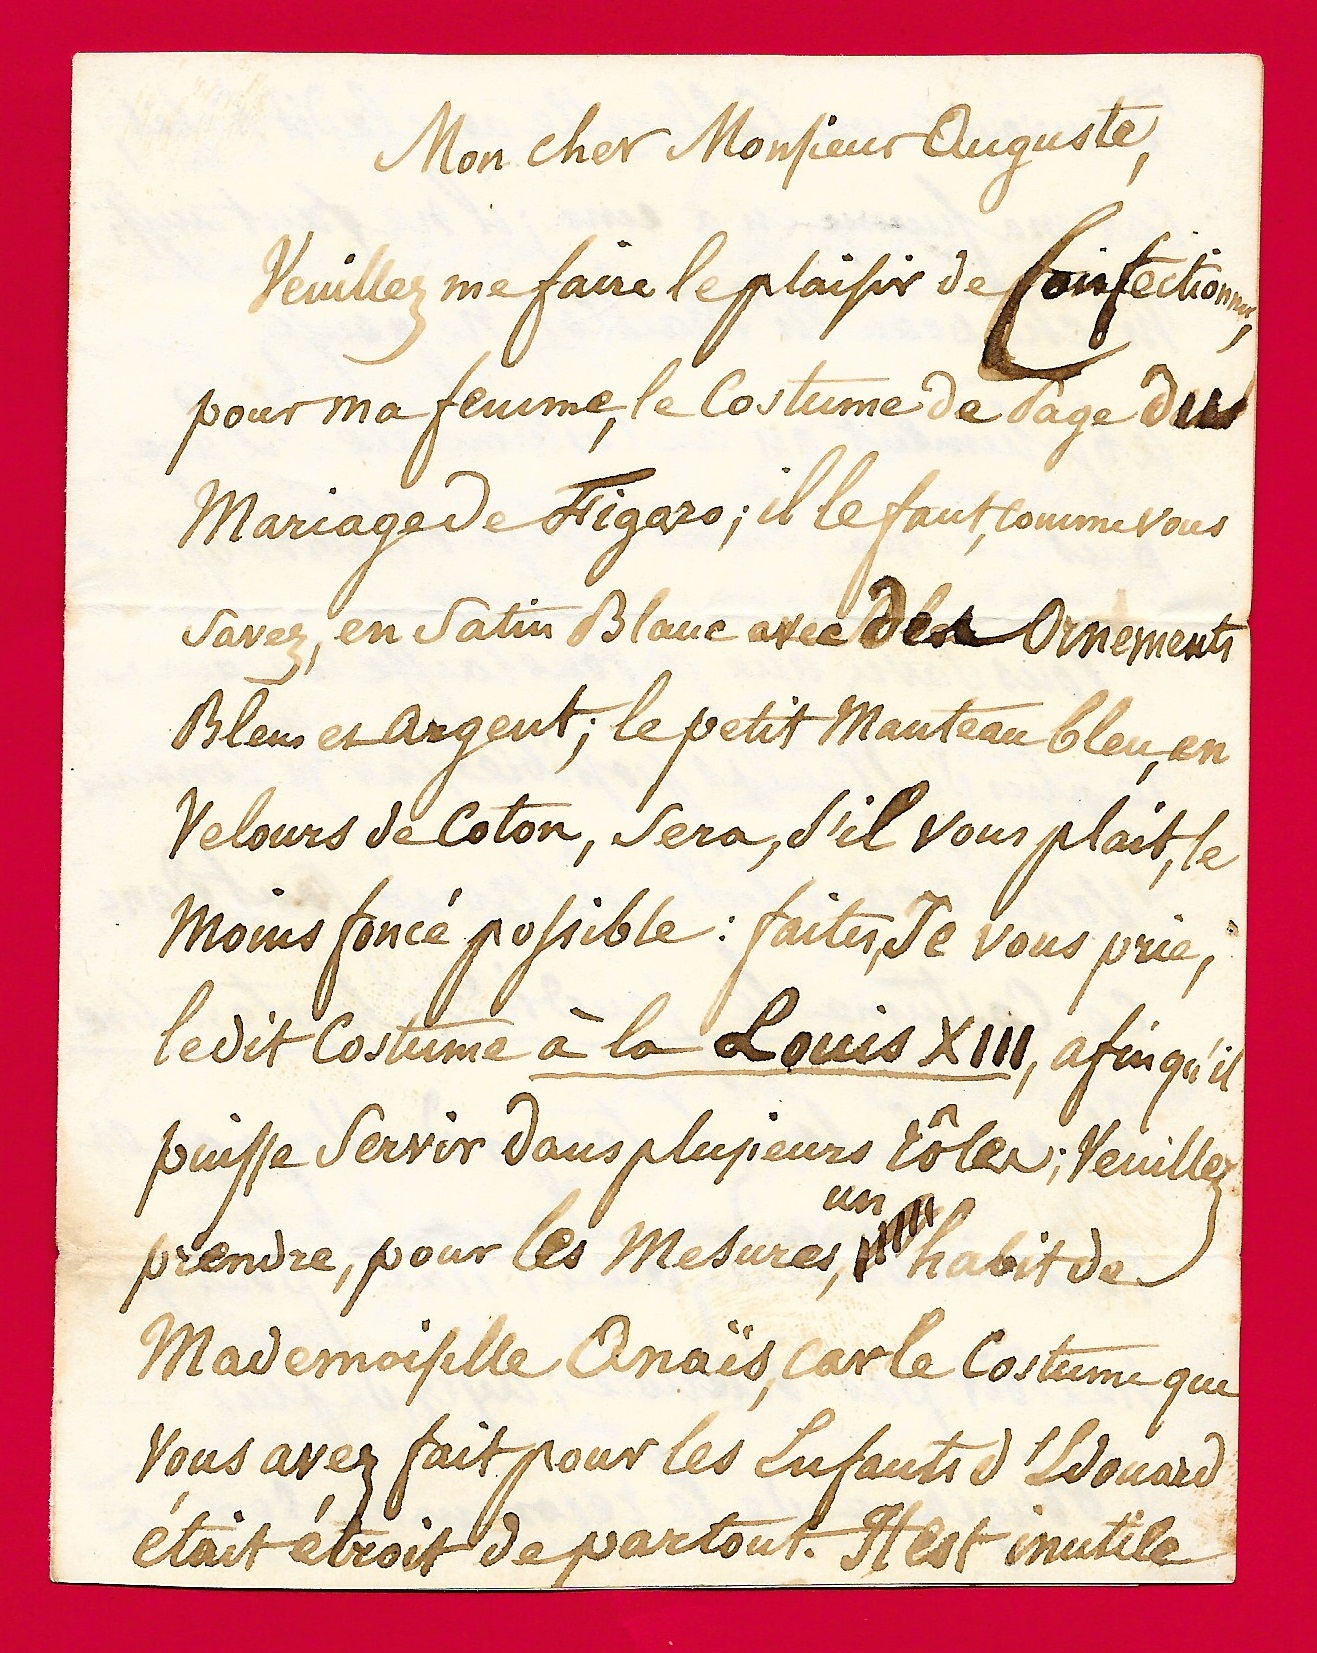 Mon cher Monsieur Auguste,
Veuillez me faire le plaisir de Confectionner,
pour ma femme, le Costume de Page du
Mariage de Figaro; il le faut, comme vous
savez, en Satin Blanc avec des Ornements
Bleus et Argent; le petit Manteau bleu, en
Velours de Coton, sera, s'il vous plait, le
Moins foncé possible: faites, Je vous prie,
ledit Costume à la Louis XIII, afin qu'il
puisse Servir dans plusieurs rôles; Veuillez
prendre, pour les Mesures, un habit de
Mademoiselle Anaïs, car le Costume que
Vous avez fait pour les Enfants d'Edouard
était étroit de partout. Il est inutile